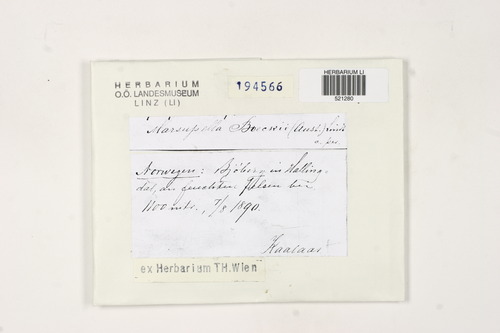 HERBARIUM
O.Ö. LANDESMUSEUM
LINZ (LI)
194566
HERBARIUM LI
521280
Marsupella Boeckii (Aust.)
c. per.
Norwegen: Bjöberg in Halling-
dal, an feuchten Felsen bei
1100 mtr., 7/8 1890.
Kaalaas
ex Herbarium TH.Wien